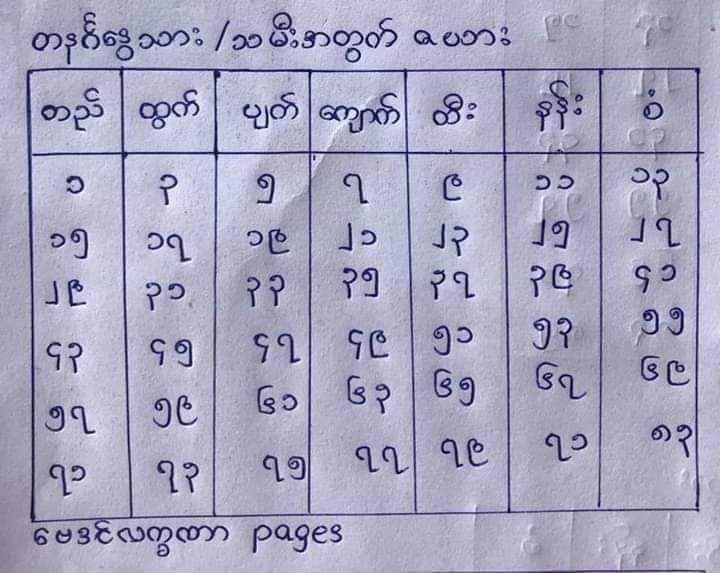 တနင်္ဂနွေသား / သမီးအတွက် ဇယား
တည် ထွက် ပျတ် ကျောက် ထီး နန်း စံ
၁ ၃ ၅ ၇ ၉ ၁၁ ၁၃
၁၅ ၁၇ ၁၉ ၂၁ ၂၃ ၂၅ ၂၇
၂၉ ၃၁ ၃၃ ၃၅ ၃၇ ၃၉ ၄၁
၄၃ ၄၅ ၄၇ ၄၉ ၅၁ ၅၃ ၅၅
၅၇ ၅၉ ၆၁ ၆၃ ၆၅ ၆၇ ၆၉
၇၁ ၇၃ ၇၅ ၇၇ ၇၉ ၇၁ ၈၃
ဗေဒင်လက္ခဏာ pages